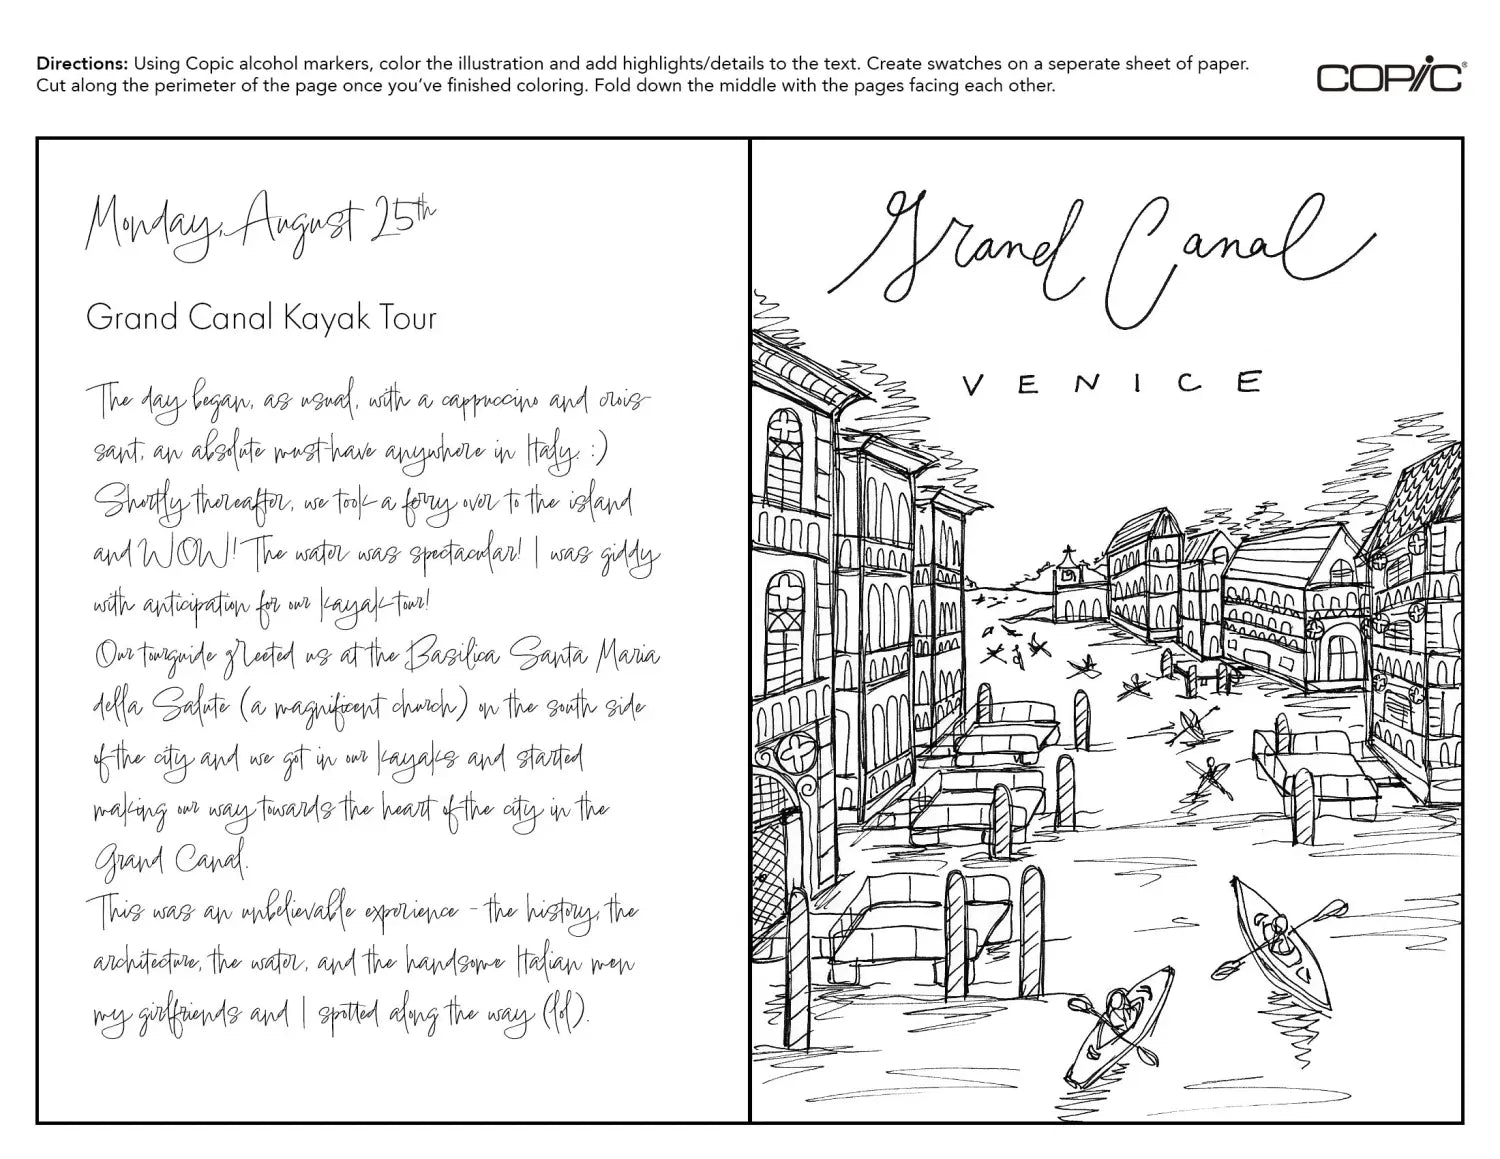 Directions: Using Copic alcohol markers, color the illustration and add highlights/details to the text. Create swatches on a seperate sheet of paper.
Cut along the perimeter of the page once you've finished coloring. Fold down the middle with the pages facing each other.
COPIC®
Monday, August 25th
Grand Canal Kayak Tour
The day began, as usual, with a cappuccino and crois-
sant, an absolute must-have anywhere in Italy. :)
Shortly thereafter, we took a ferry over to the island
and WOW! The water was spectacular! I was giddy
with anticipation for our kayak tour!
Our tourguide greeted us at the Basilica Santa Maria
della Salute (a magnificent church) on the south side
of the city and we got in our kayaks and started
making our way towards the heart of the city in the
Grand Canal.
This was an unbelievable experience - the history, the
architecture, the water, and the handsome Italian men
my girlfriends and I spotted along the way (lol).
Grand Canal
VENICE